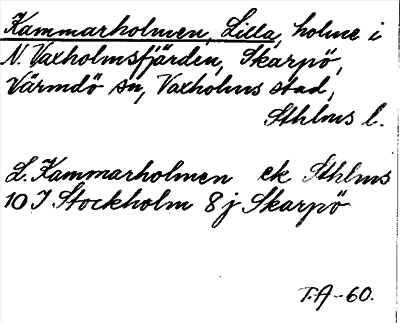 Kammarholmen, Lilla, holme i
N. Vaxholmsfjärden, Skarpö,
Värmdö sn, Vaxholms stad,
Sthlms l.
L. Kammarholmen ek Sthlms
10 I Stockholm 8 j Skarpö
T.A-60.